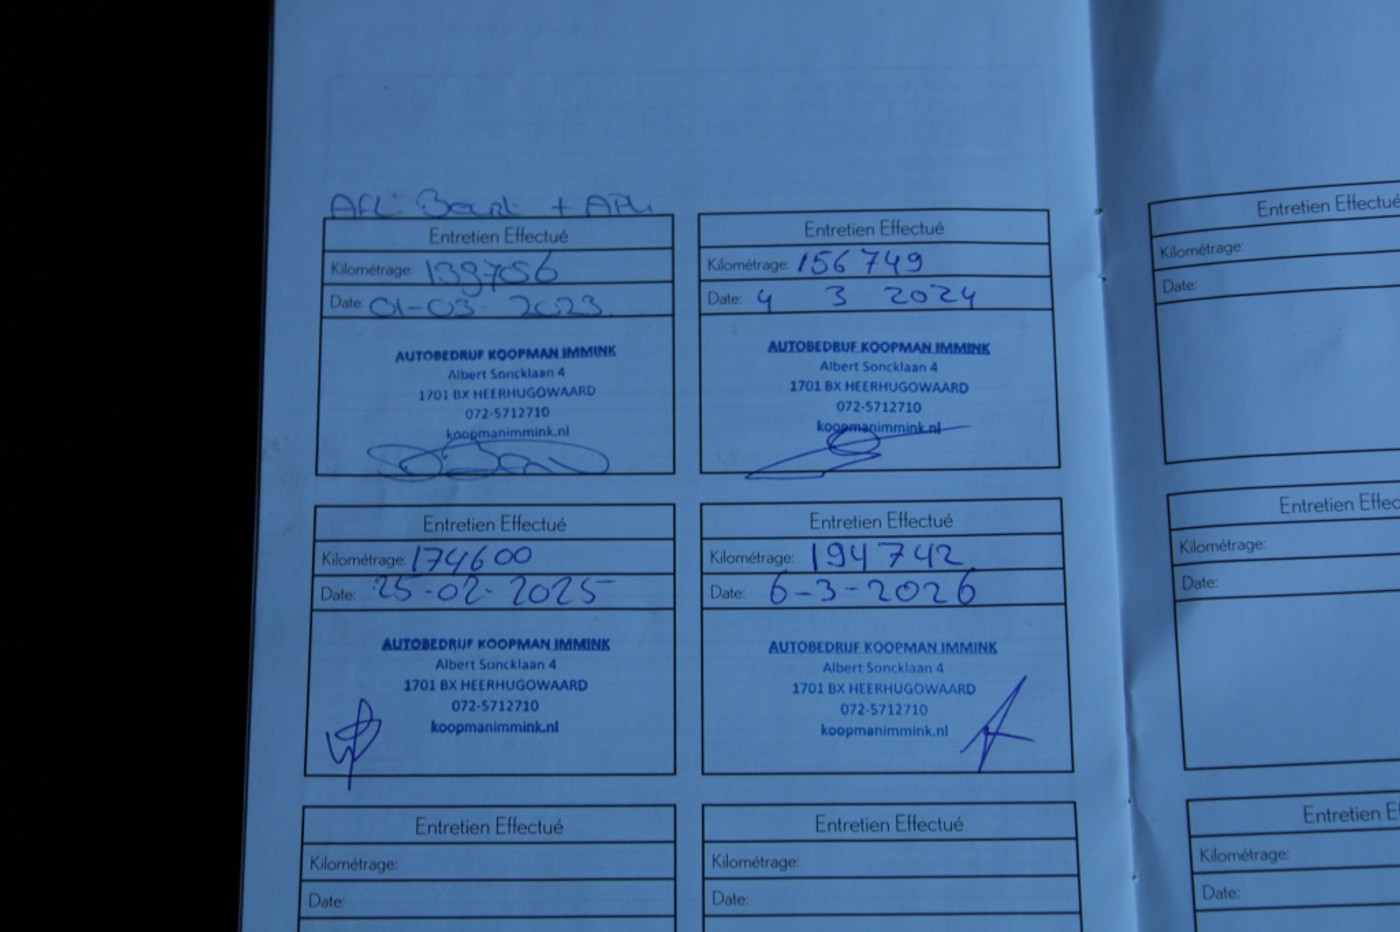 Entretien Effectué
Kilométrage: 139756
Date: 01-03-2023
AUTOBEDRIJF KOOPMAN IMMINK
Albert Soncklaan 4
1701 BX HEERHUGOWAARD
072-5712710
koopmanimmink.nl
Entretien Effectué
Kilométrage: 156749
Date: 4 3 2024
AUTOBEDRIJF KOOPMAN IMMINK
Albert Soncklaan 4
1701 BX HEERHUGOWAARD
072-5712710
koopmanimmink.nl
Entretien Effectué
Kilométrage:
Date:
Entretien Effectué
Kilométrage: 174600
Date: 25-02-2025
AUTOBEDRIJF KOOPMAN IMMINK
Albert Soncklaan 4
1701 BX HEERHUGOWAARD
072-5712710
koopmanimmink.nl
Entretien Effectué
Kilométrage: 194742
Date: 6-3-2026
AUTOBEDRIJF KOOPMAN IMMINK
Albert Soncklaan 4
1701 BX HEERHUGOWAARD
072-5712710
koopmanimmink.nl
Entretien Effec
Kilométrage:
Date:
Entretien Effectué
Kilométrage:
Date:
Entretien Effectué
Kilométrage:
Date:
Entretien E
Kilométrage:
Date: